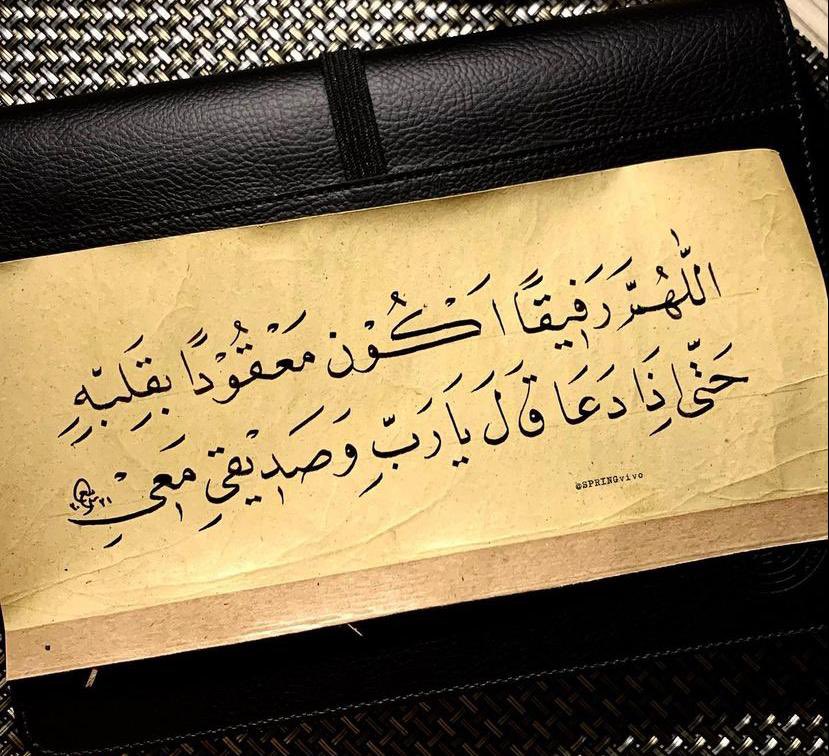 اللّٰهُمَّ رَفِيقًا اَكُوْن مَعْقُوْدًا بِقَلبِهِ
حَتّىٰ إِذَا دَعَا قَالَ يَا رَبِّ وَصَدِيْقِي مَعِيْ
@SPRINGvivo